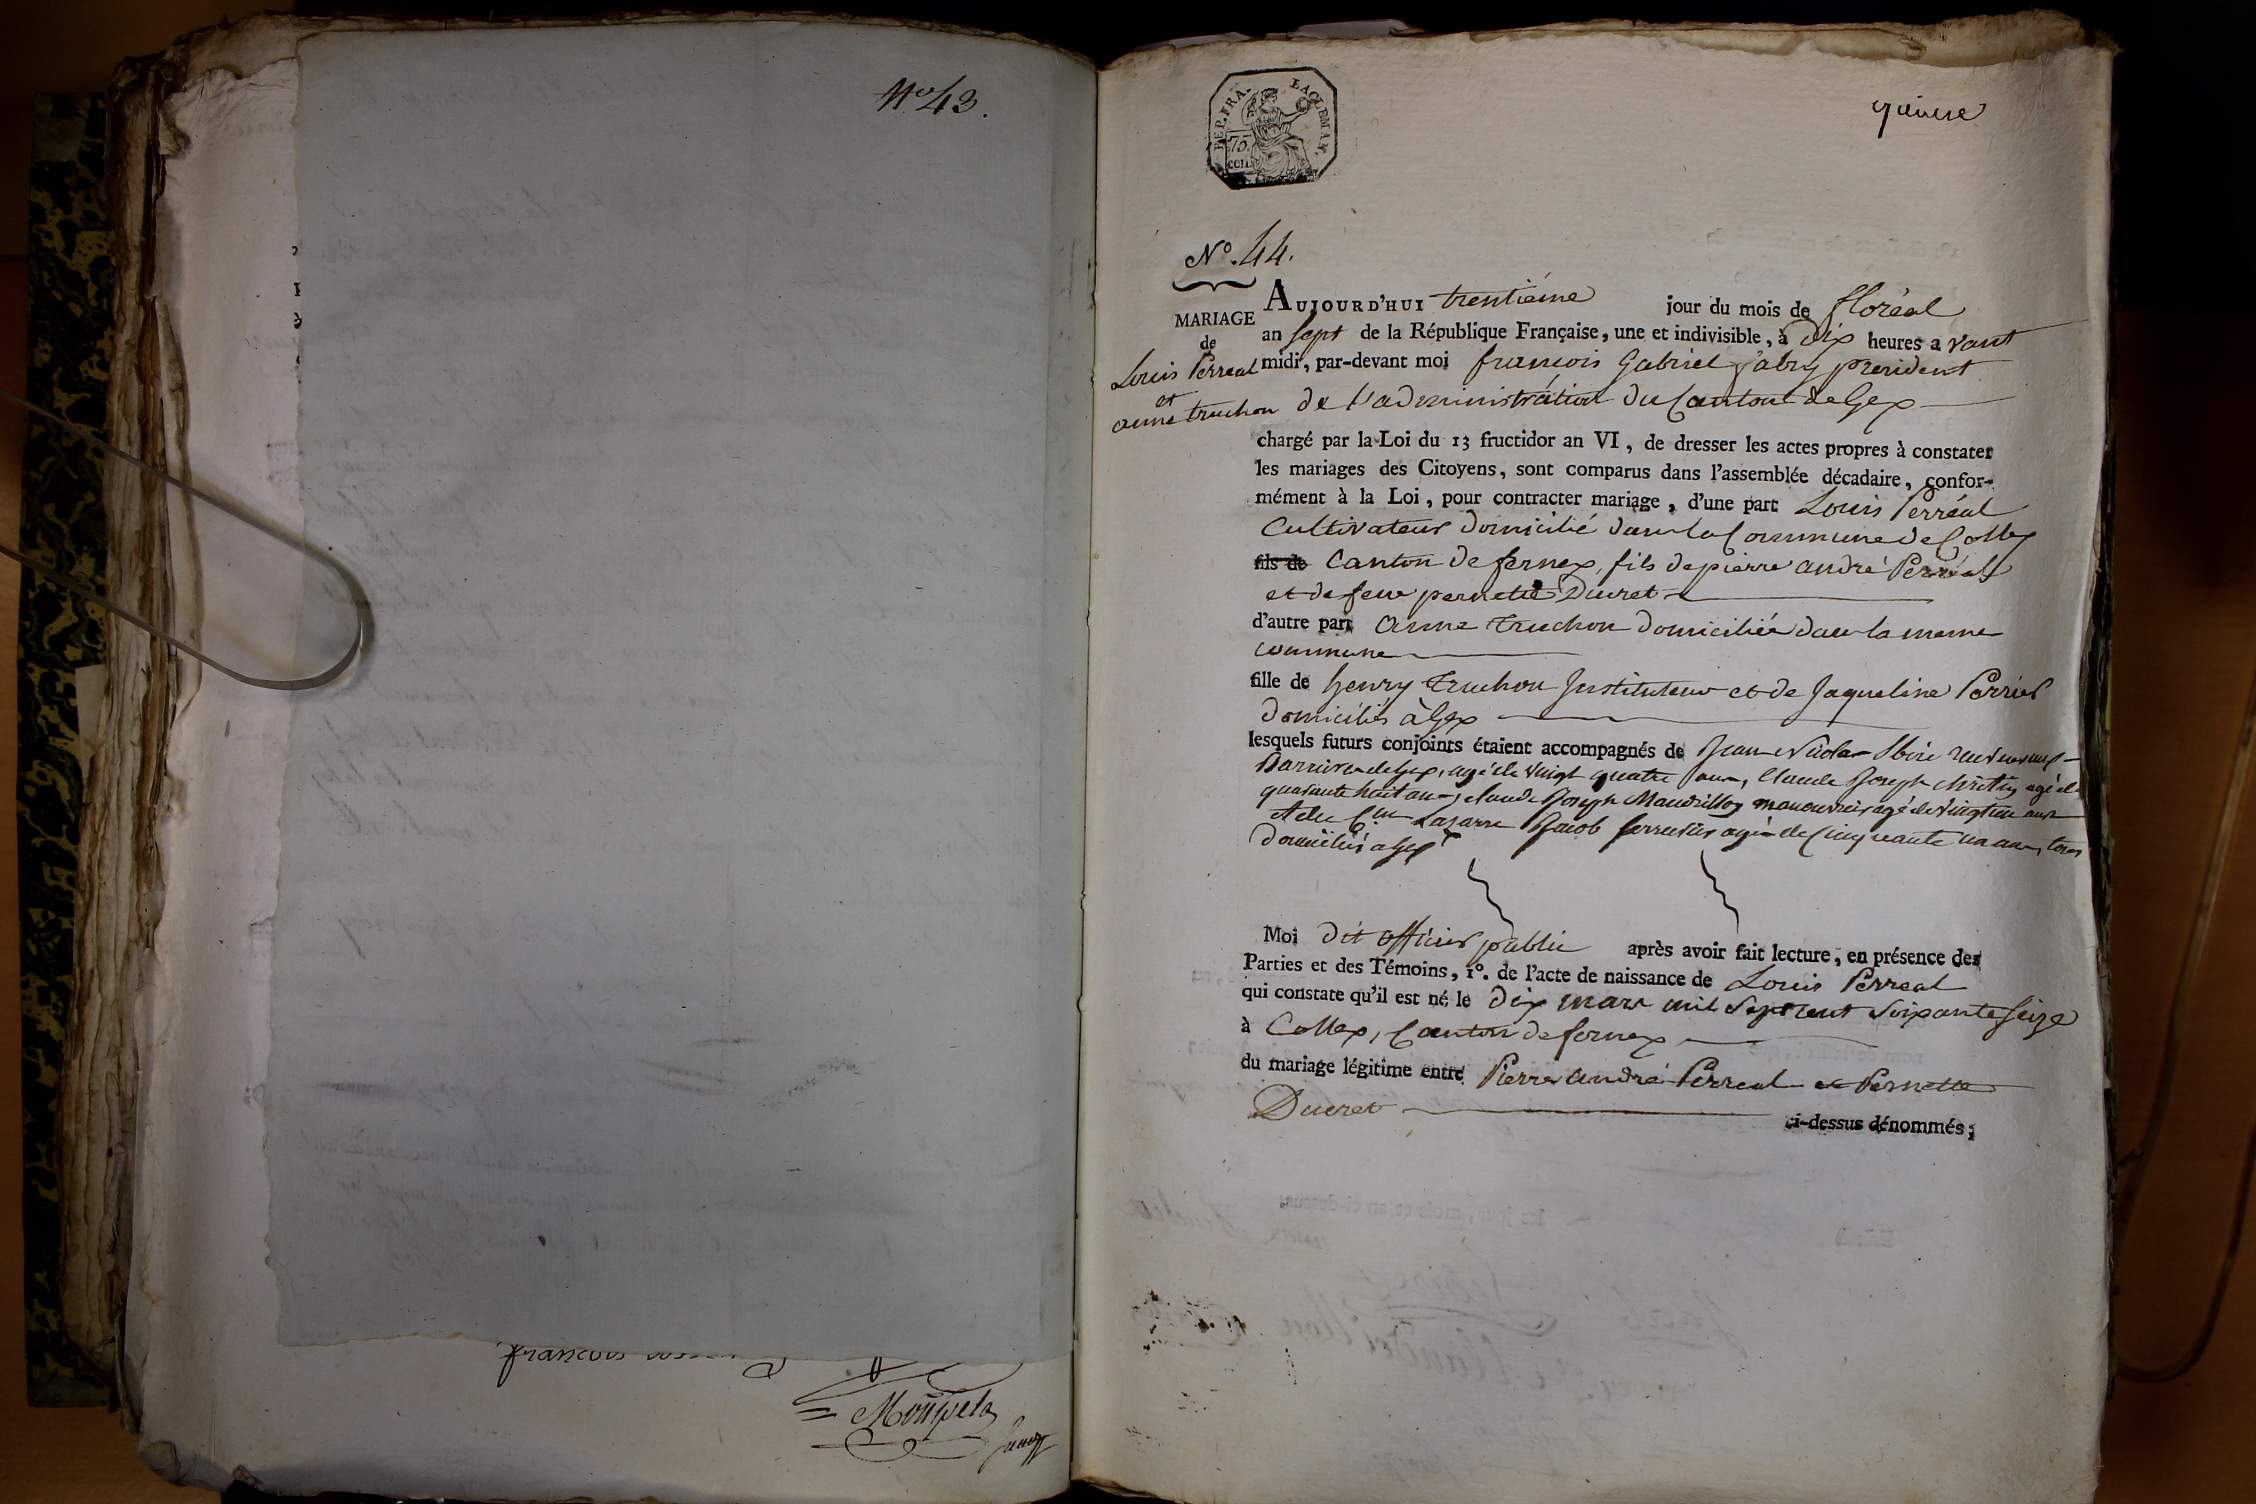 N.º 43.
quinze
REP. FRA.
75.
cen.
N.º 44.
MARIAGE
de
Louis Perréal
et
anne truchon
AUJOURD'HUI trentiéme jour du mois de floréal
an sept de la République Française, une et indivisible, à dix heures avant
midi, par-devant moi francois Gabriel fabry president
de l'administration du Canton de Gex
chargé par la Loi du 13 fructidor an VI, de dresser les actes propres à constater
les mariages des Citoyens, sont comparus dans l'assemblée décadaire, confor-
mément à la Loi, pour contracter mariage, d'une part Louis Perréal
Cultivateur domicilié dans la Commune de Collex
fils de Canton de fernex, fils de pierre andré Perréal
et de feue pernette Ducret
d'autre part anne truchon domiciliée dans la meme
commune
fille de henry truchon Instituteur et de Jaqueline Perrier
domiciliés à Gex
lesquels futurs conjoints étaient accompagnés de Jean Nicolas
de Gex, agé de vingt quatre ans, Claude Joseph agé de
quarante huit ans, claude Joseph Mandrillon manouvrier agé de vingt ans
et du Cen Lazarre Jacob serrurier agé de Cinquante un ans, tous
domiciliés a Gex
Moi dit officier public après avoir fait lecture, en présence des
Parties et des Témoins, 1º. de l'acte de naissance de Louis Perréal
qui constate qu'il est né le dix mars mil sept cent soixante seize
à Collex, Canton de fernex
du mariage légitime entre Pierre andré Perréal et Pernette
Ducret
ci-dessus dénommés;
francois